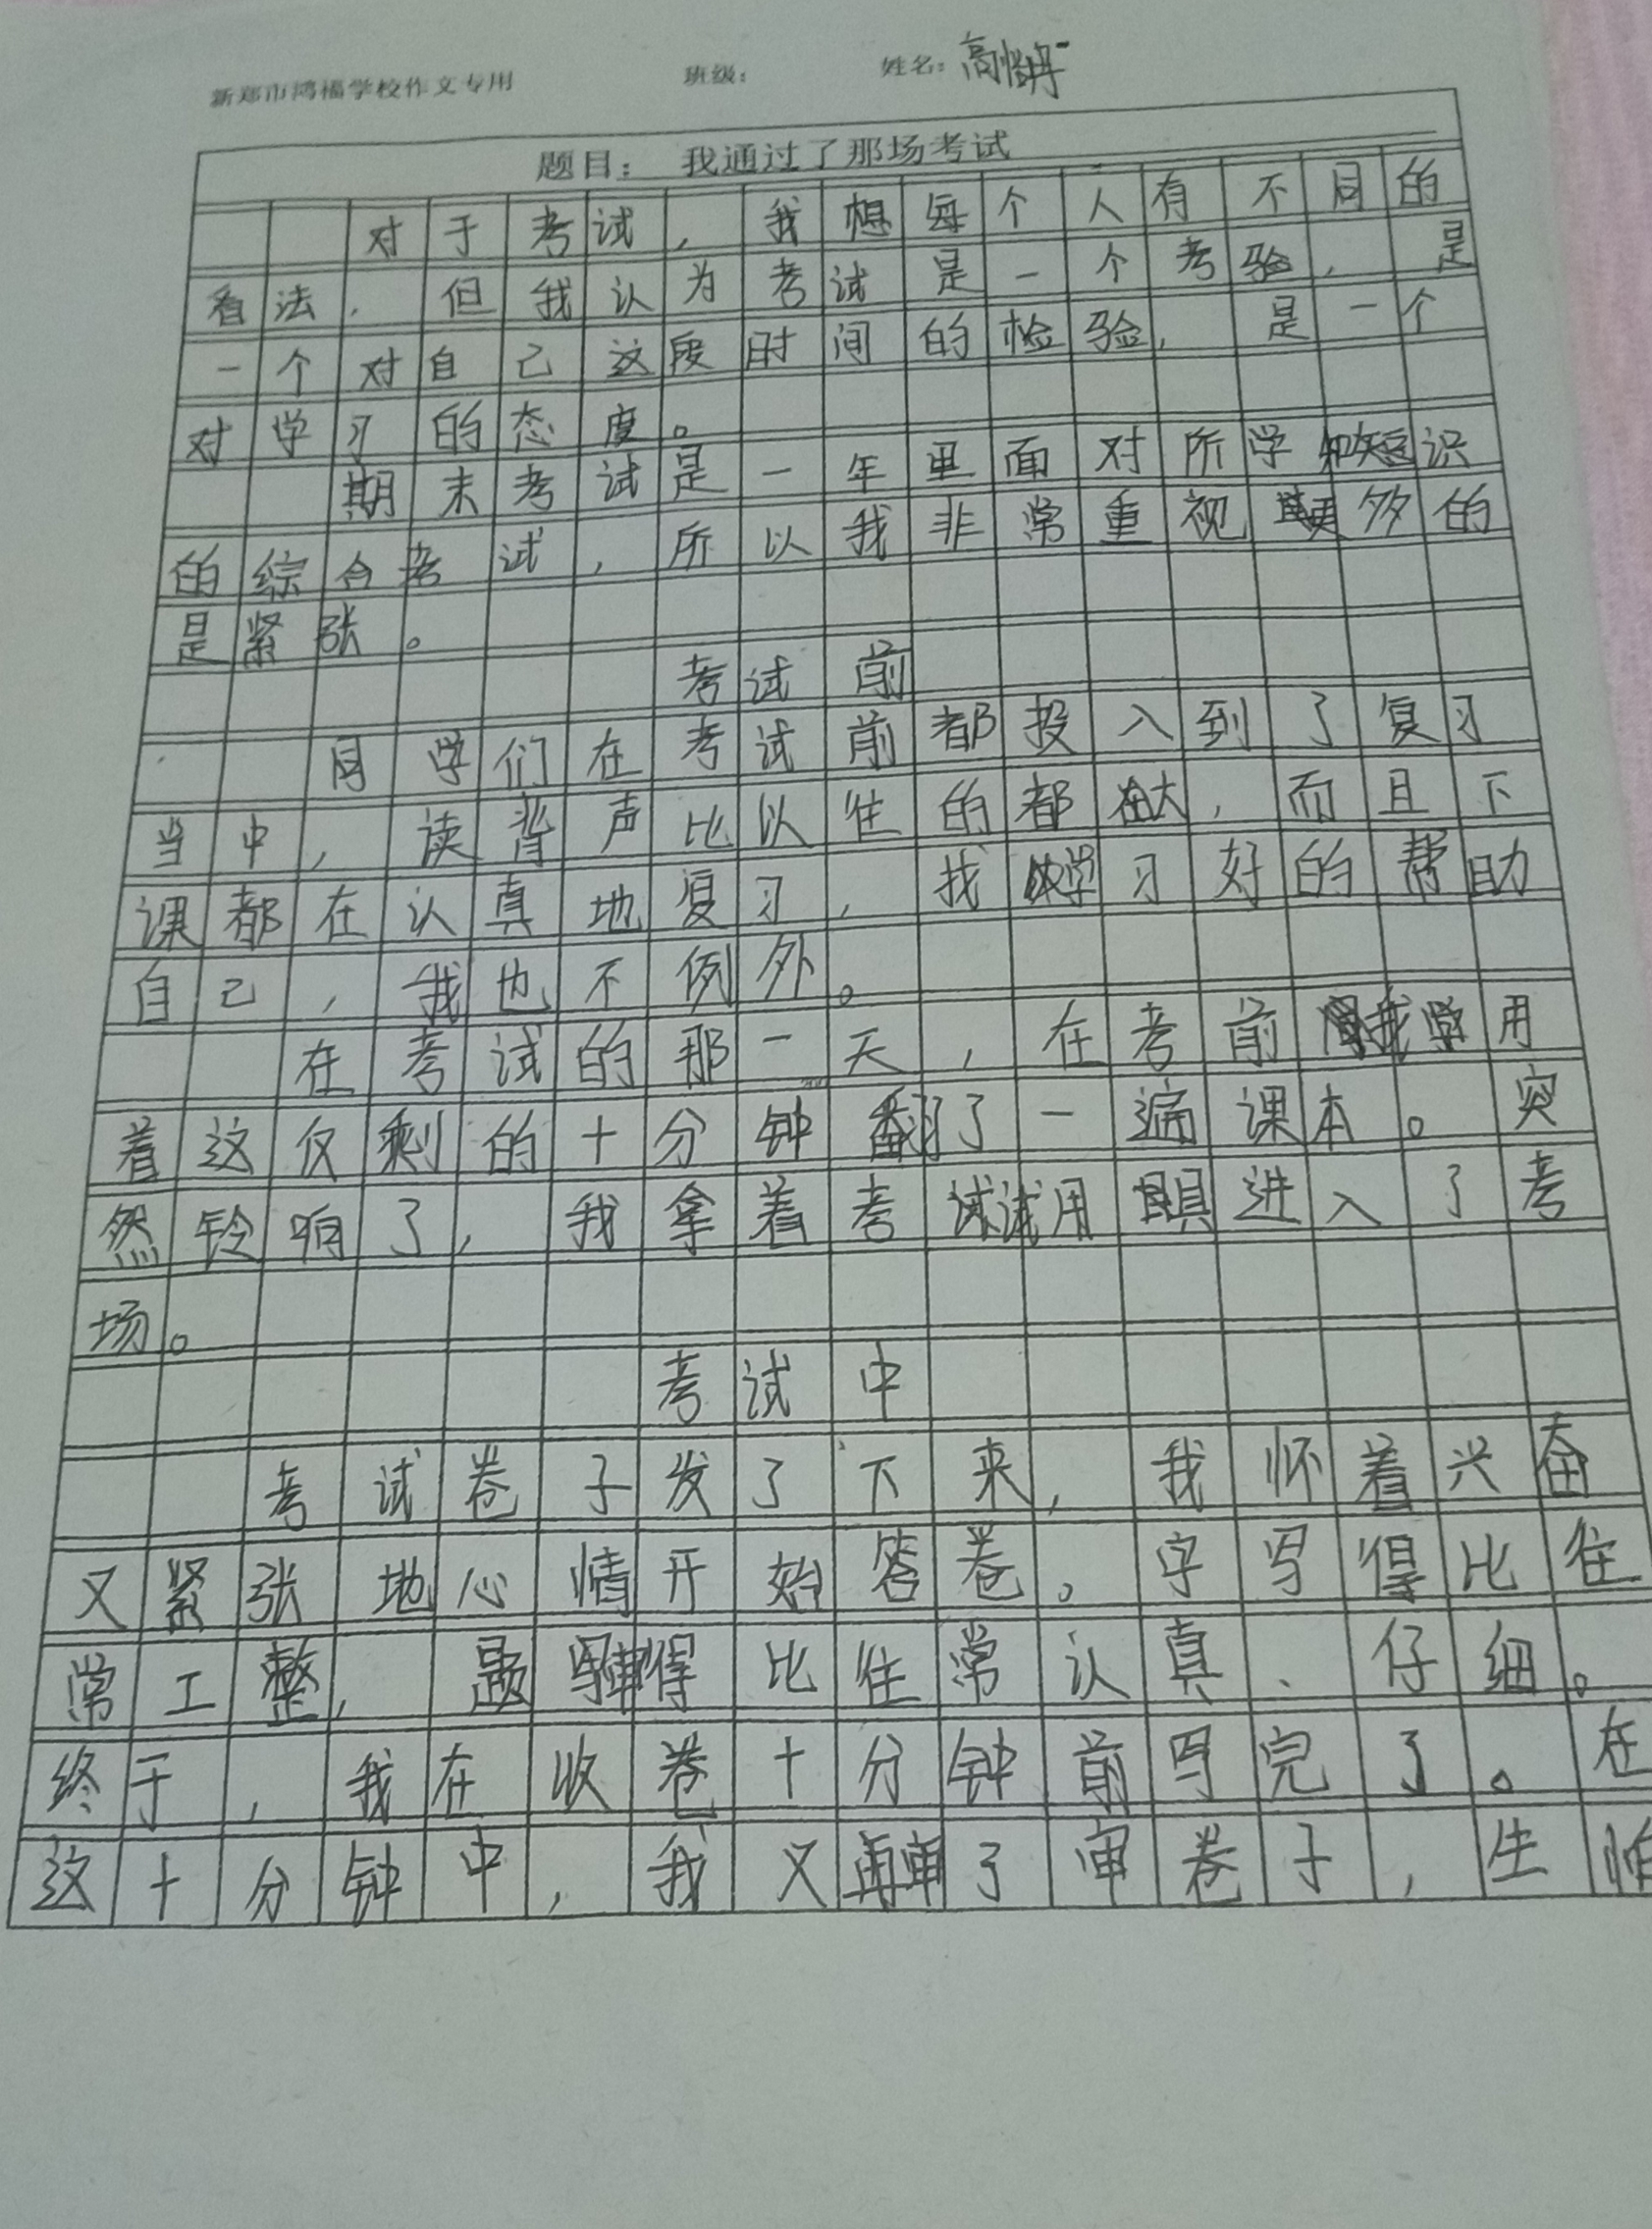 新郑市鸿福学校作文专用 班级： 姓名：高
题目： 我通过了那场考试
对于考试，我想每个人有不同的
看法，但我认为考试是一个考验，是
一个对自己这段时间的检验，是一个
对学习的态度。
期末考试是一年里面对所学知识
的综合考试，所以我非常重视更多的
是紧张。
考试前
同学们在考试前都投入到了复习
当中，读背声比以往的都大，而且下
课都在认真地复习，找学习好的帮助
自己，我也不例外。
在考试的那一天，在考前我用
着这仅剩的十分钟翻了一遍课本。突
然铃响了，我拿着考试用具进入了考
场。
考试中
考试卷子发了下来，我怀着兴奋
又紧张地心情开始答卷。字写得比往
常工整，题审得比往常认真、仔细。
终于，我在收卷十分钟前写完了。在
这十分钟中，我又审了审卷子，生怕